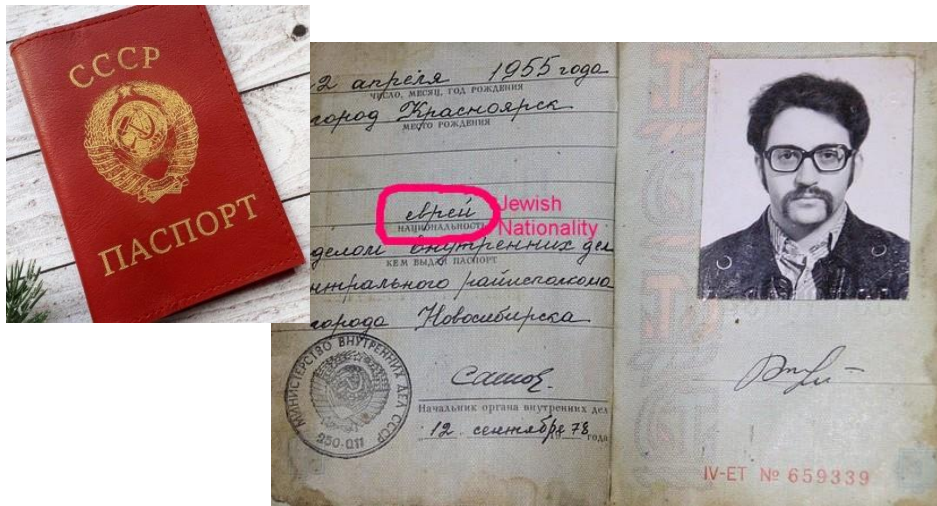 СССР
ПАСПОРТ
2 апреля 1955 года
ЧИСЛО, МЕСЯЦ, ГОД РОЖДЕНИЯ
город Красноярск
МЕСТО РОЖДЕНИЯ
еврей
Jewish
Nationality
НАЦИОНАЛЬНОСТЬ
делом внутренних дел
КЕМ ВЫДАН ПАСПОРТ
нтрального райисполкома
города Новосибирска
МИНИСТЕРСТВО ВНУТРЕННИХ ДЕЛ СССР
250-011
Начальник органа внутренних дел
12 сентября 1978 года
IV-ЕТ № 659339